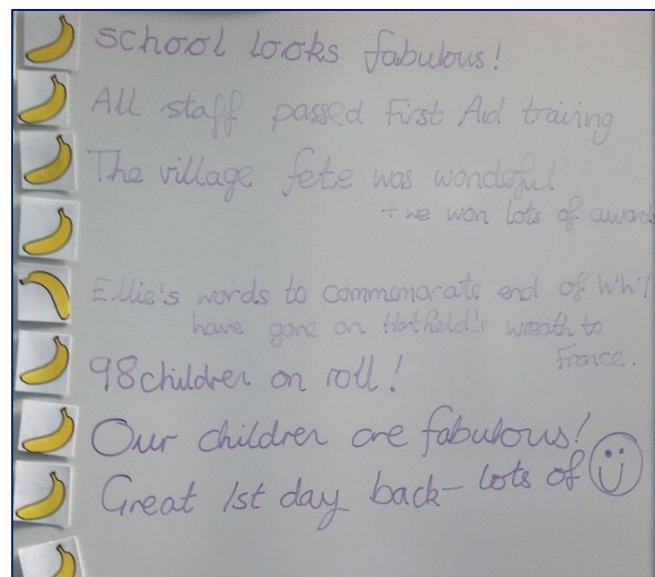 School looks fabulous!
All staff passed First Aid training
The village fete was wondeful
+ we won lots of awards
Ellie's words to commemorate end of WW1
have gone on Hatfield's wreath to
France.
98 children on roll!
Our children are fabulous!
Great 1st day back - lots of